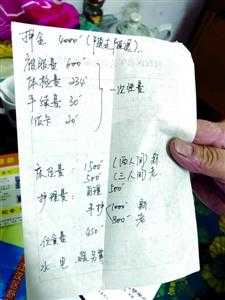 押金 4000 (随走随退).
被服费 600
体检费 234
手续费 30
IC卡 20
一次性费
床位费: 1500 (两人间) 新
500 (三人间) 老
护理费: 自理 500
半护 1000 新
800 老
伙食费 450
水 电